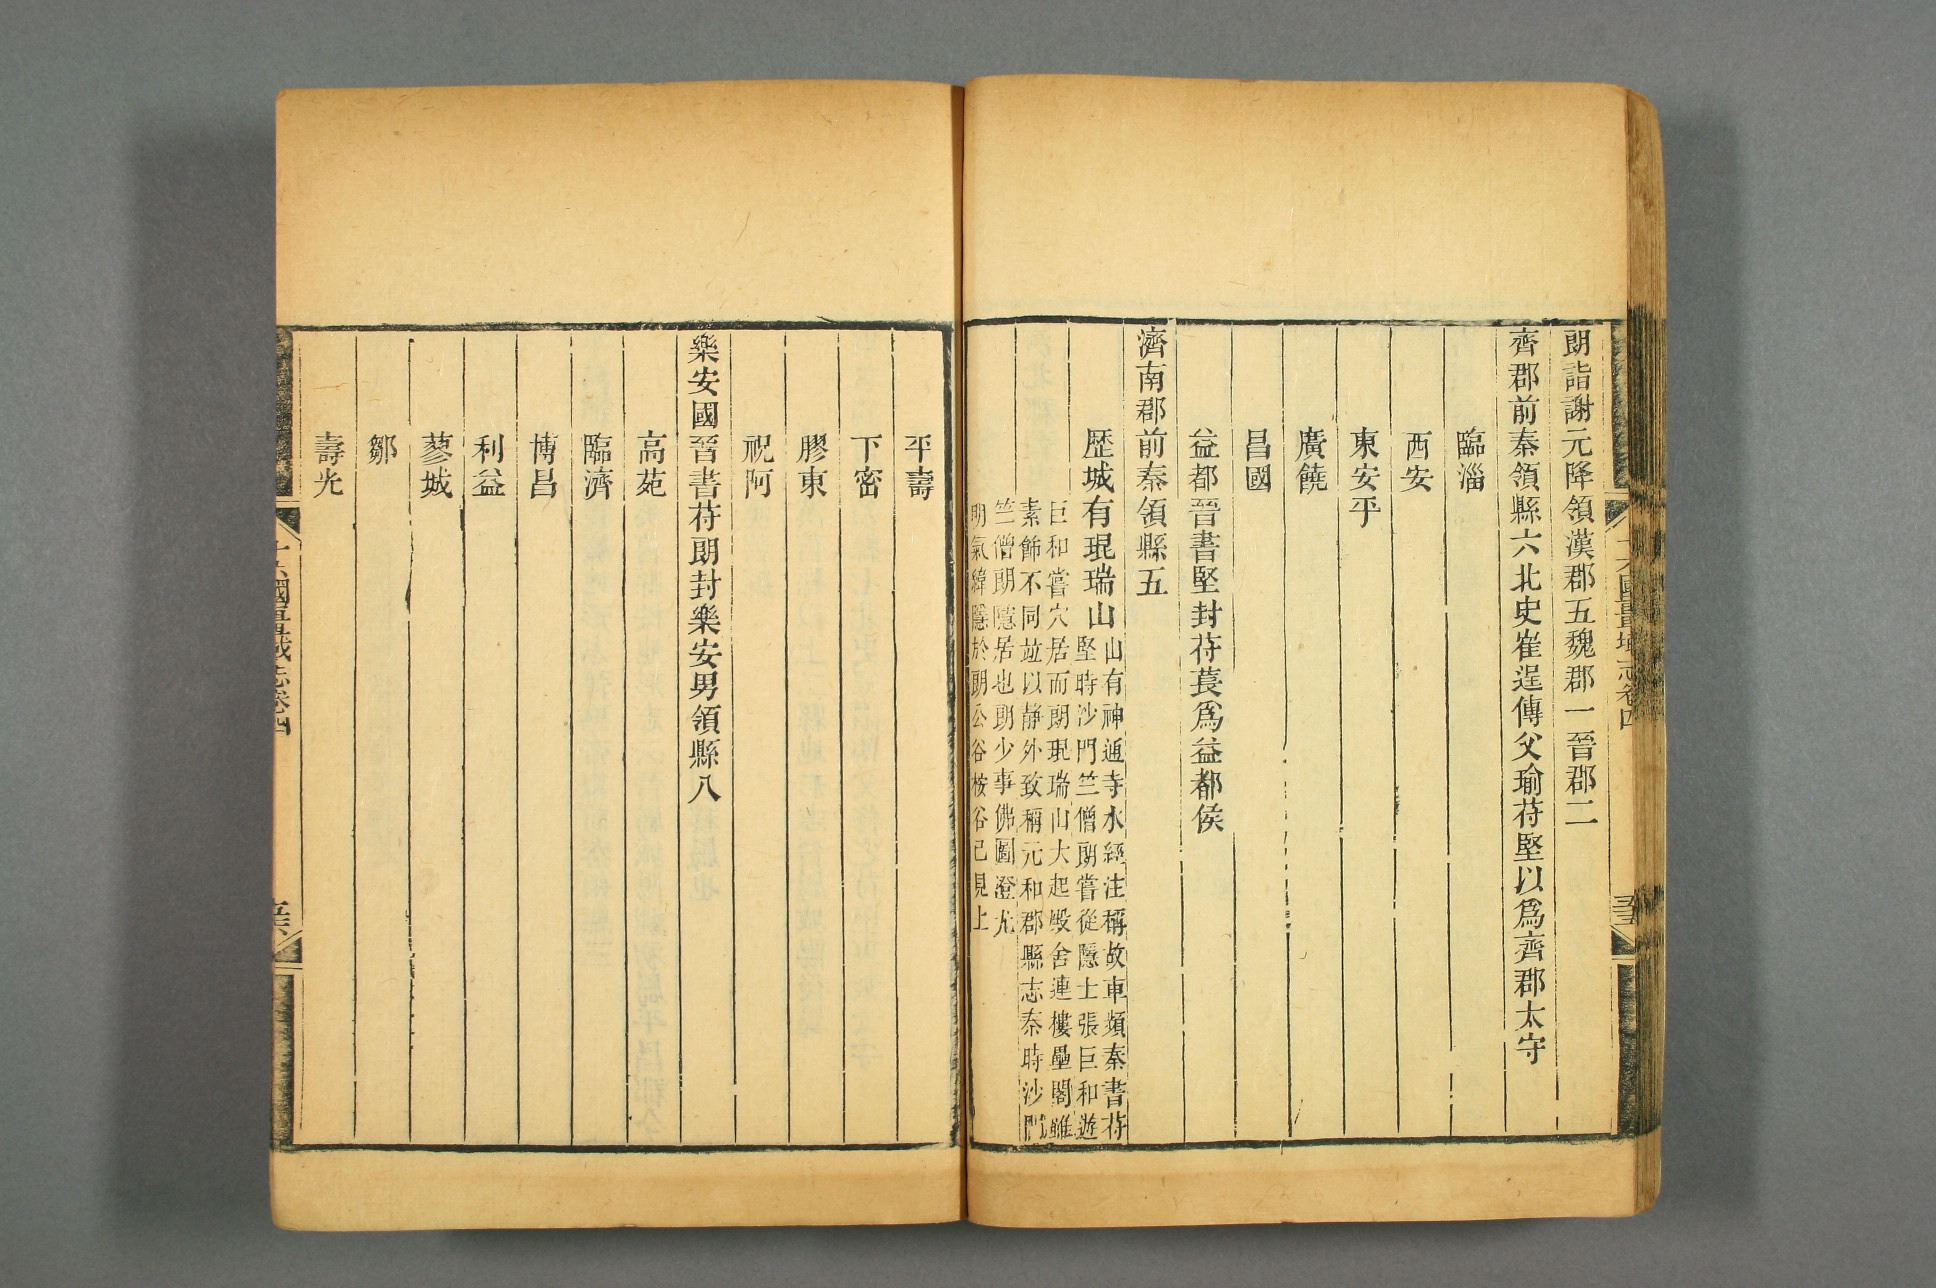 朗詣謝元降領漢郡五魏郡一晉郡二
齊郡前秦領縣六北史崔逞傳父瑜苻堅以爲齊郡太守
臨淄
西安
東安平
廣饒
昌國
益都晉書堅封苻萇爲益都侯
濟南郡前秦領縣五
歷城有琨瑞山
山有神通寺水經注稱故車頻秦書苻
堅時沙門竺僧朗嘗從隱士張巨和遊
巨和嘗穴居而朗琨瑞山大起殿舍連樓壘閣雖
素飾不同竝以静外致稱元和郡縣志秦時沙門
竺僧朗隱居也朗少事佛圖澄尤
明氣緯隱於朗公谷桉谷已見上
十六國疆域志卷四
平壽
下密
膠東
祝阿
樂安國晉書苻朗封樂安男領縣八
高苑
臨濟
博昌
利益
蓼城
鄒
壽光
十六國疆域志卷四